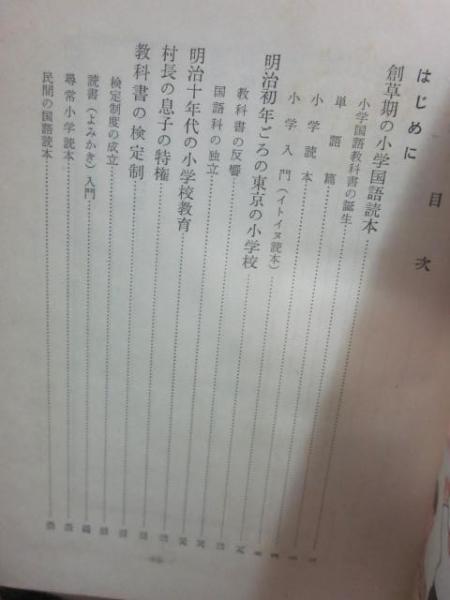 目次
はじめに
創草期の小学国語読本
小学国語教科書の誕生
単語篇
小学読本
小学入門（イトイヌ読本）
明治初年ごろの東京の小学校
教科書の反響
国語科の独立
明治十年代の小学校教育
村長の息子の特権
教科書の検定制
検定制度の成立
読書（よみかき）入門
尋常小学読本
民間の国語読本